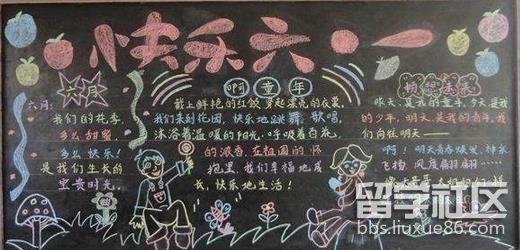 快乐六·一
六月
六月:
我们的花季,
多么甜蜜,
多么快乐!
是我们生长的
宝贵时光。
啊 童年
戴上鲜艳的红领巾,穿起漂亮的衣裳,
我们来到花园,快乐地跳舞,歌唱
沐浴着温暖的阳光,呼吸着百花
的浓香,在祖国的怀
抱里,我们幸福地成
长,快乐地生活!
昨天,是我的童年,今天,是我
的少年,明天,是我的青年,我
们向往明天——
啊!明天青春焕发,神采
飞扬,风度翩翩……
留学社区
bbs.liuxue86.com